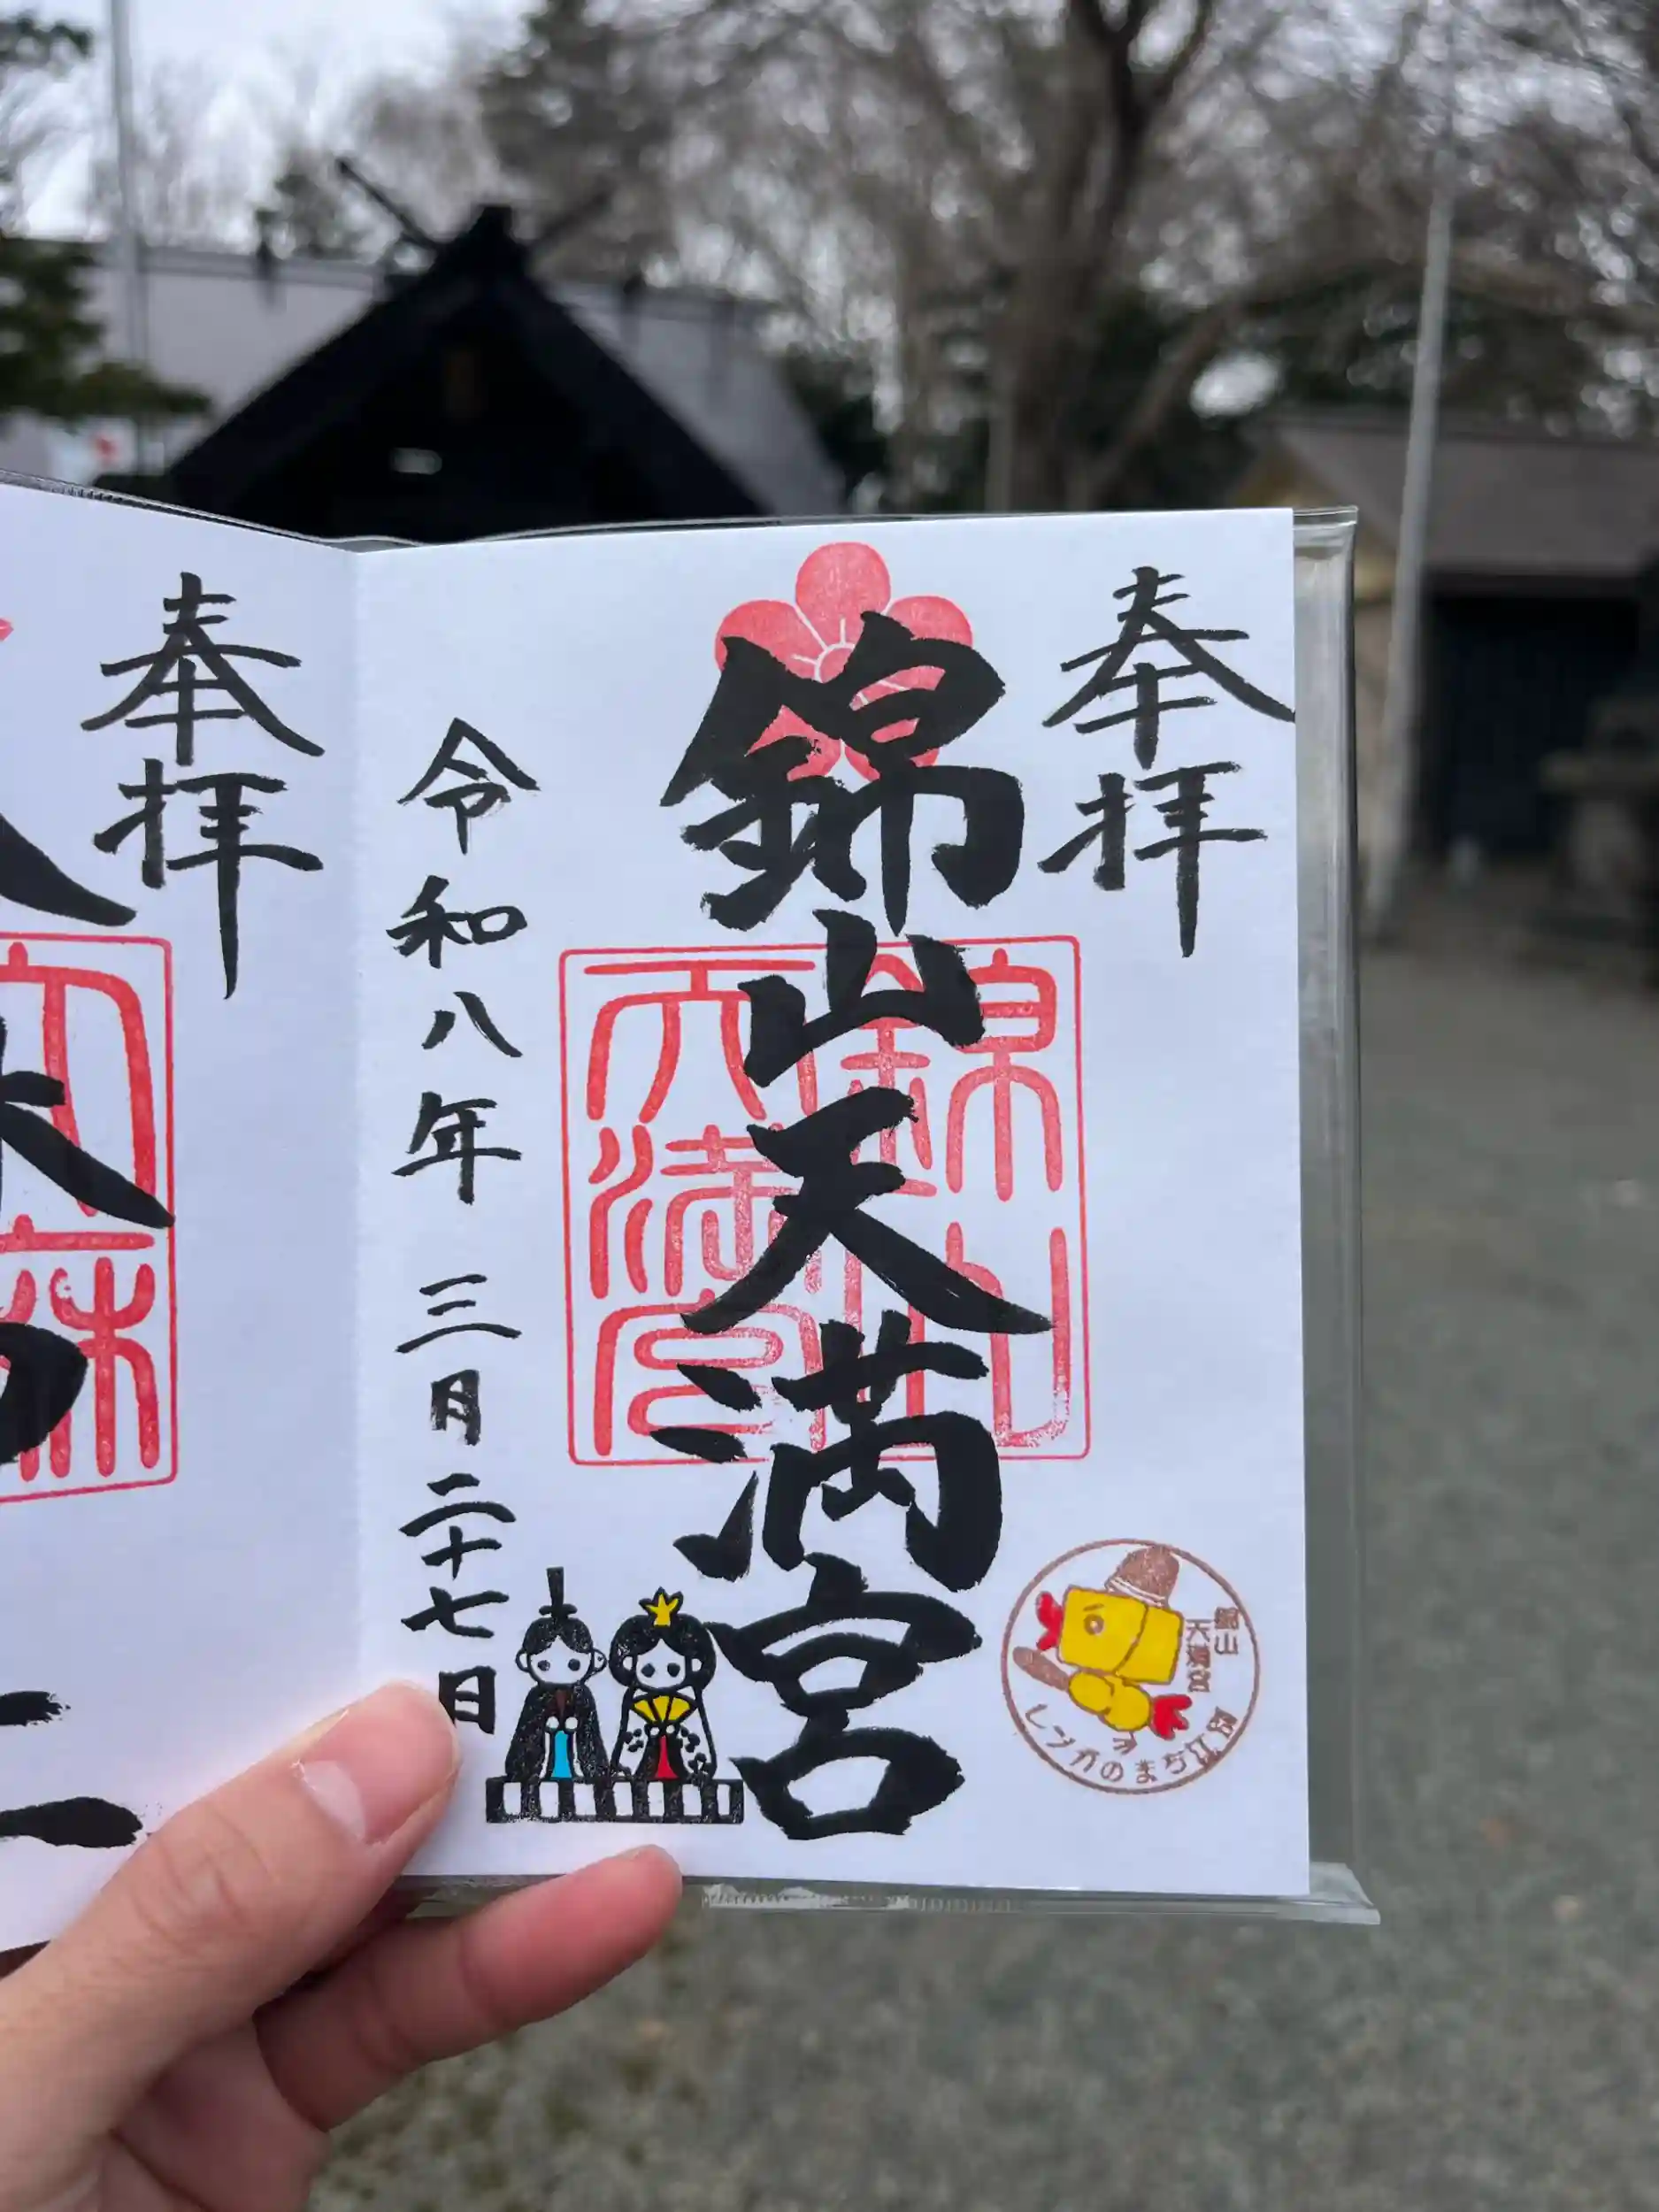 奉拝
錦山天満宮
錦山
天満宮
令和八年 三月二十七日
錦山
天満宮
レンガのまち江別
奉拝